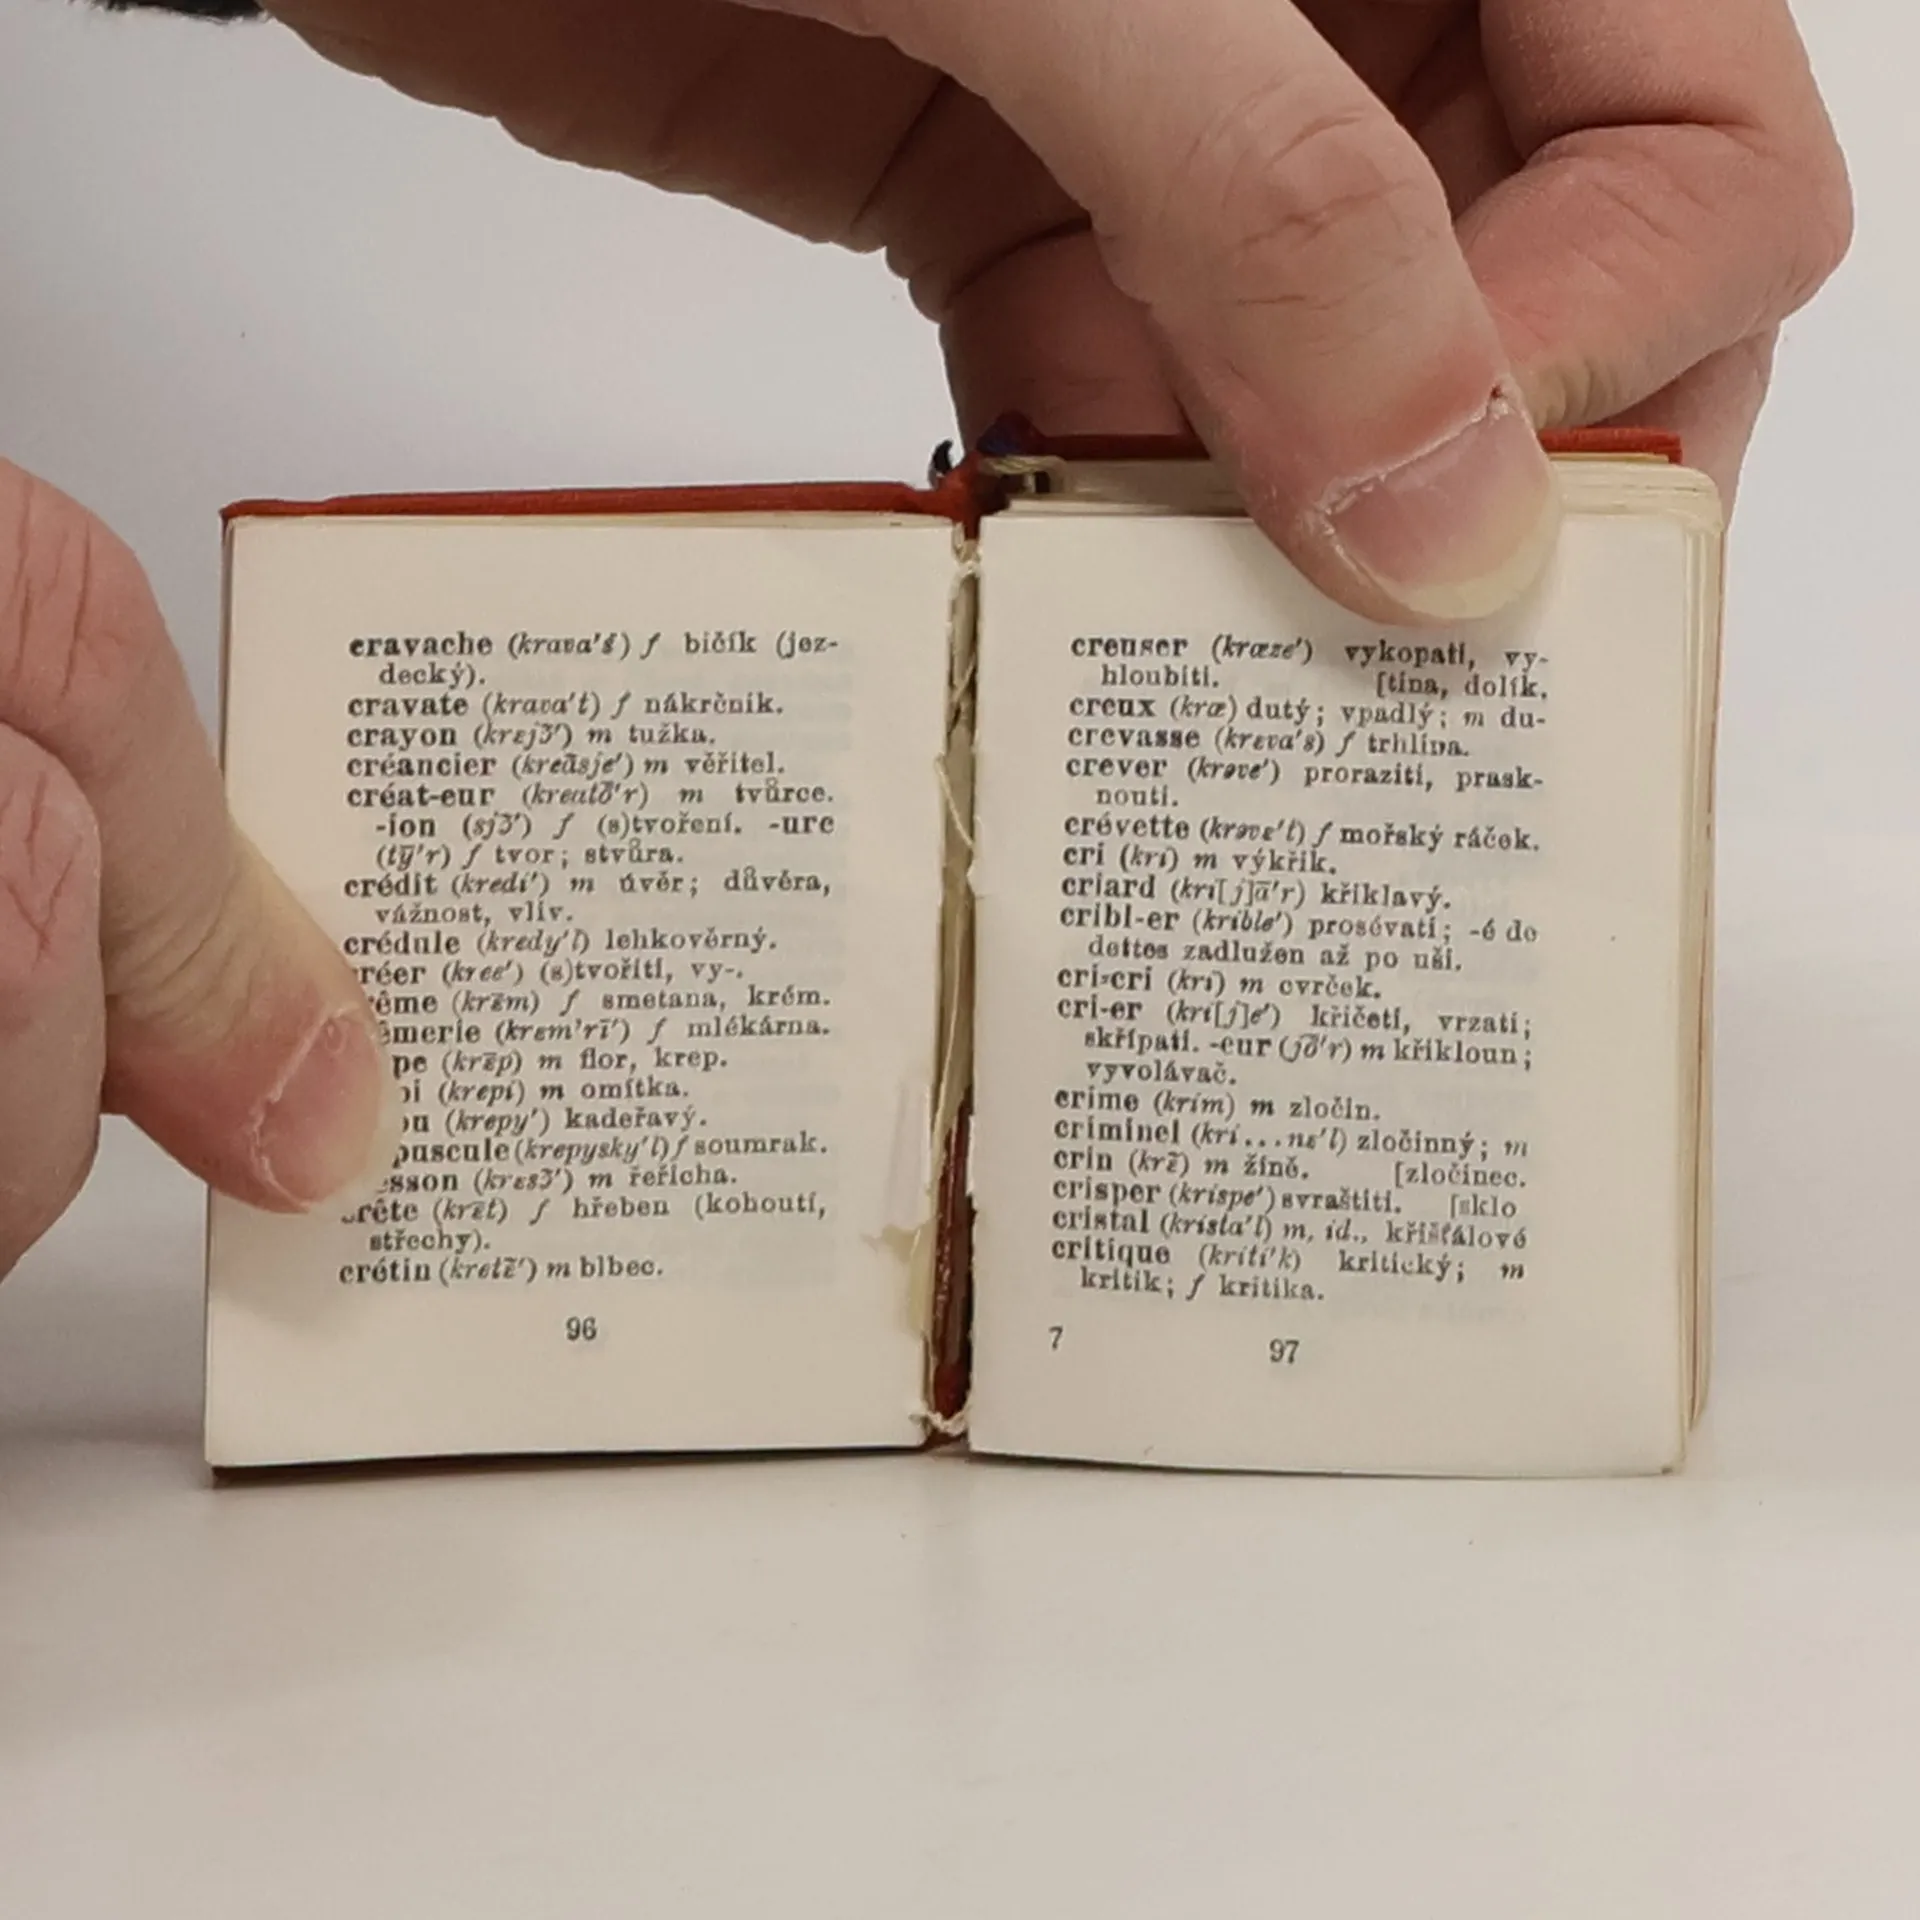 cravache (krava'š) f bičík (jez-
decký).
cravate (krava't) f nákrčník.
crayon (krɛjɔ̃') m tužka.
créancier (kreãsje') m věřitel.
créat-eur (kreatȫ'r) m tvůrce.
-ion (sjɔ̃') f (s)tvoření. -ure
(tȳ'r) f tvor; stvůra.
crédit (kredi') m úvěr; důvěra,
vážnost, vliv.
crédule (kredy'l) lehkověrný.
réer (kree') (s)tvořiti, vy-.
ême (krɛ̄m) f smetana, krém.
êmerie (krɛm'rī') f mlékárna.
pe (krɛ̄p) m flor, krep.
pi (krepi) m omítka.
pu (krepy') kadeřavý.
puscule (krepysky'l) f soumrak.
esson (krɛsɔ̃') m řeřicha.
rête (krɛ̄t) f hřeben (kohoutí,
střechy).
crétin (kretɛ̃') m blbec.
96
creuser (krœze') vykopati, vy-
hloubiti. [tina, dolík.
creux (krœ) dutý; vpadlý; m du-
crevasse (krɛva's) f trhlina.
crever (krəve') proraziti, prask-
nouti.
crévette (krəvɛ't) f mořský ráček.
cri (kri) m výkřik.
criard (kri[j]ā'r) křiklavý.
cribl-er (krible') prosévati; -é de
dettes zadlužen až po uši.
cri-cri (kri) m cvrček.
cri-er (kri[j]e') křičeti, vrzati;
skřípati. -eur (jȫ'r) m křikloun;
vyvolávač.
crime (krim) m zločin.
criminel (kri...nɛ'l) zločinný; m
crin (krɛ̃) m žíně. [zločinec.
crisper (krispe') svraštiti. [sklo
cristal (krista'l) m, id., křišťálové
critique (kriti'k) kritický; m
kritik; f kritika.
7 97